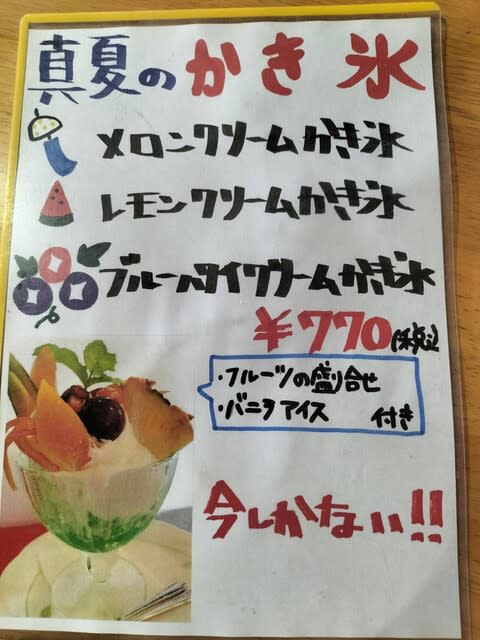 真夏のかき氷
メロンクリームかき氷
レモンクリームかき氷
ブルーハワイクリームかき氷
¥770(税込)
・フルーツの盛り合せ
・バニラアイス 付き
今しかない!!